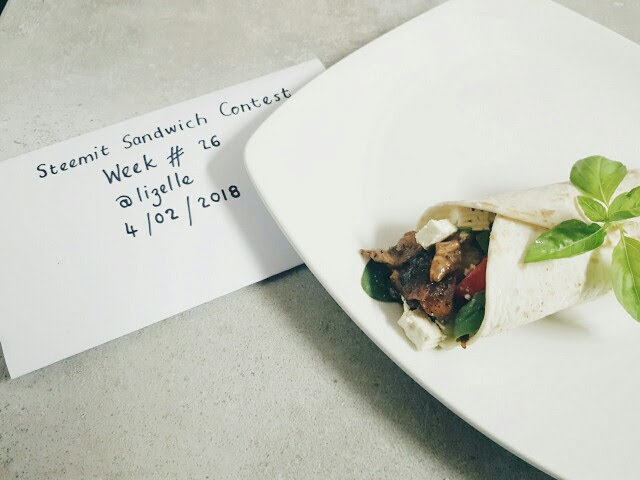 Steemit Sandwich Contest
Week # 26
@lizelle
4/02/2018